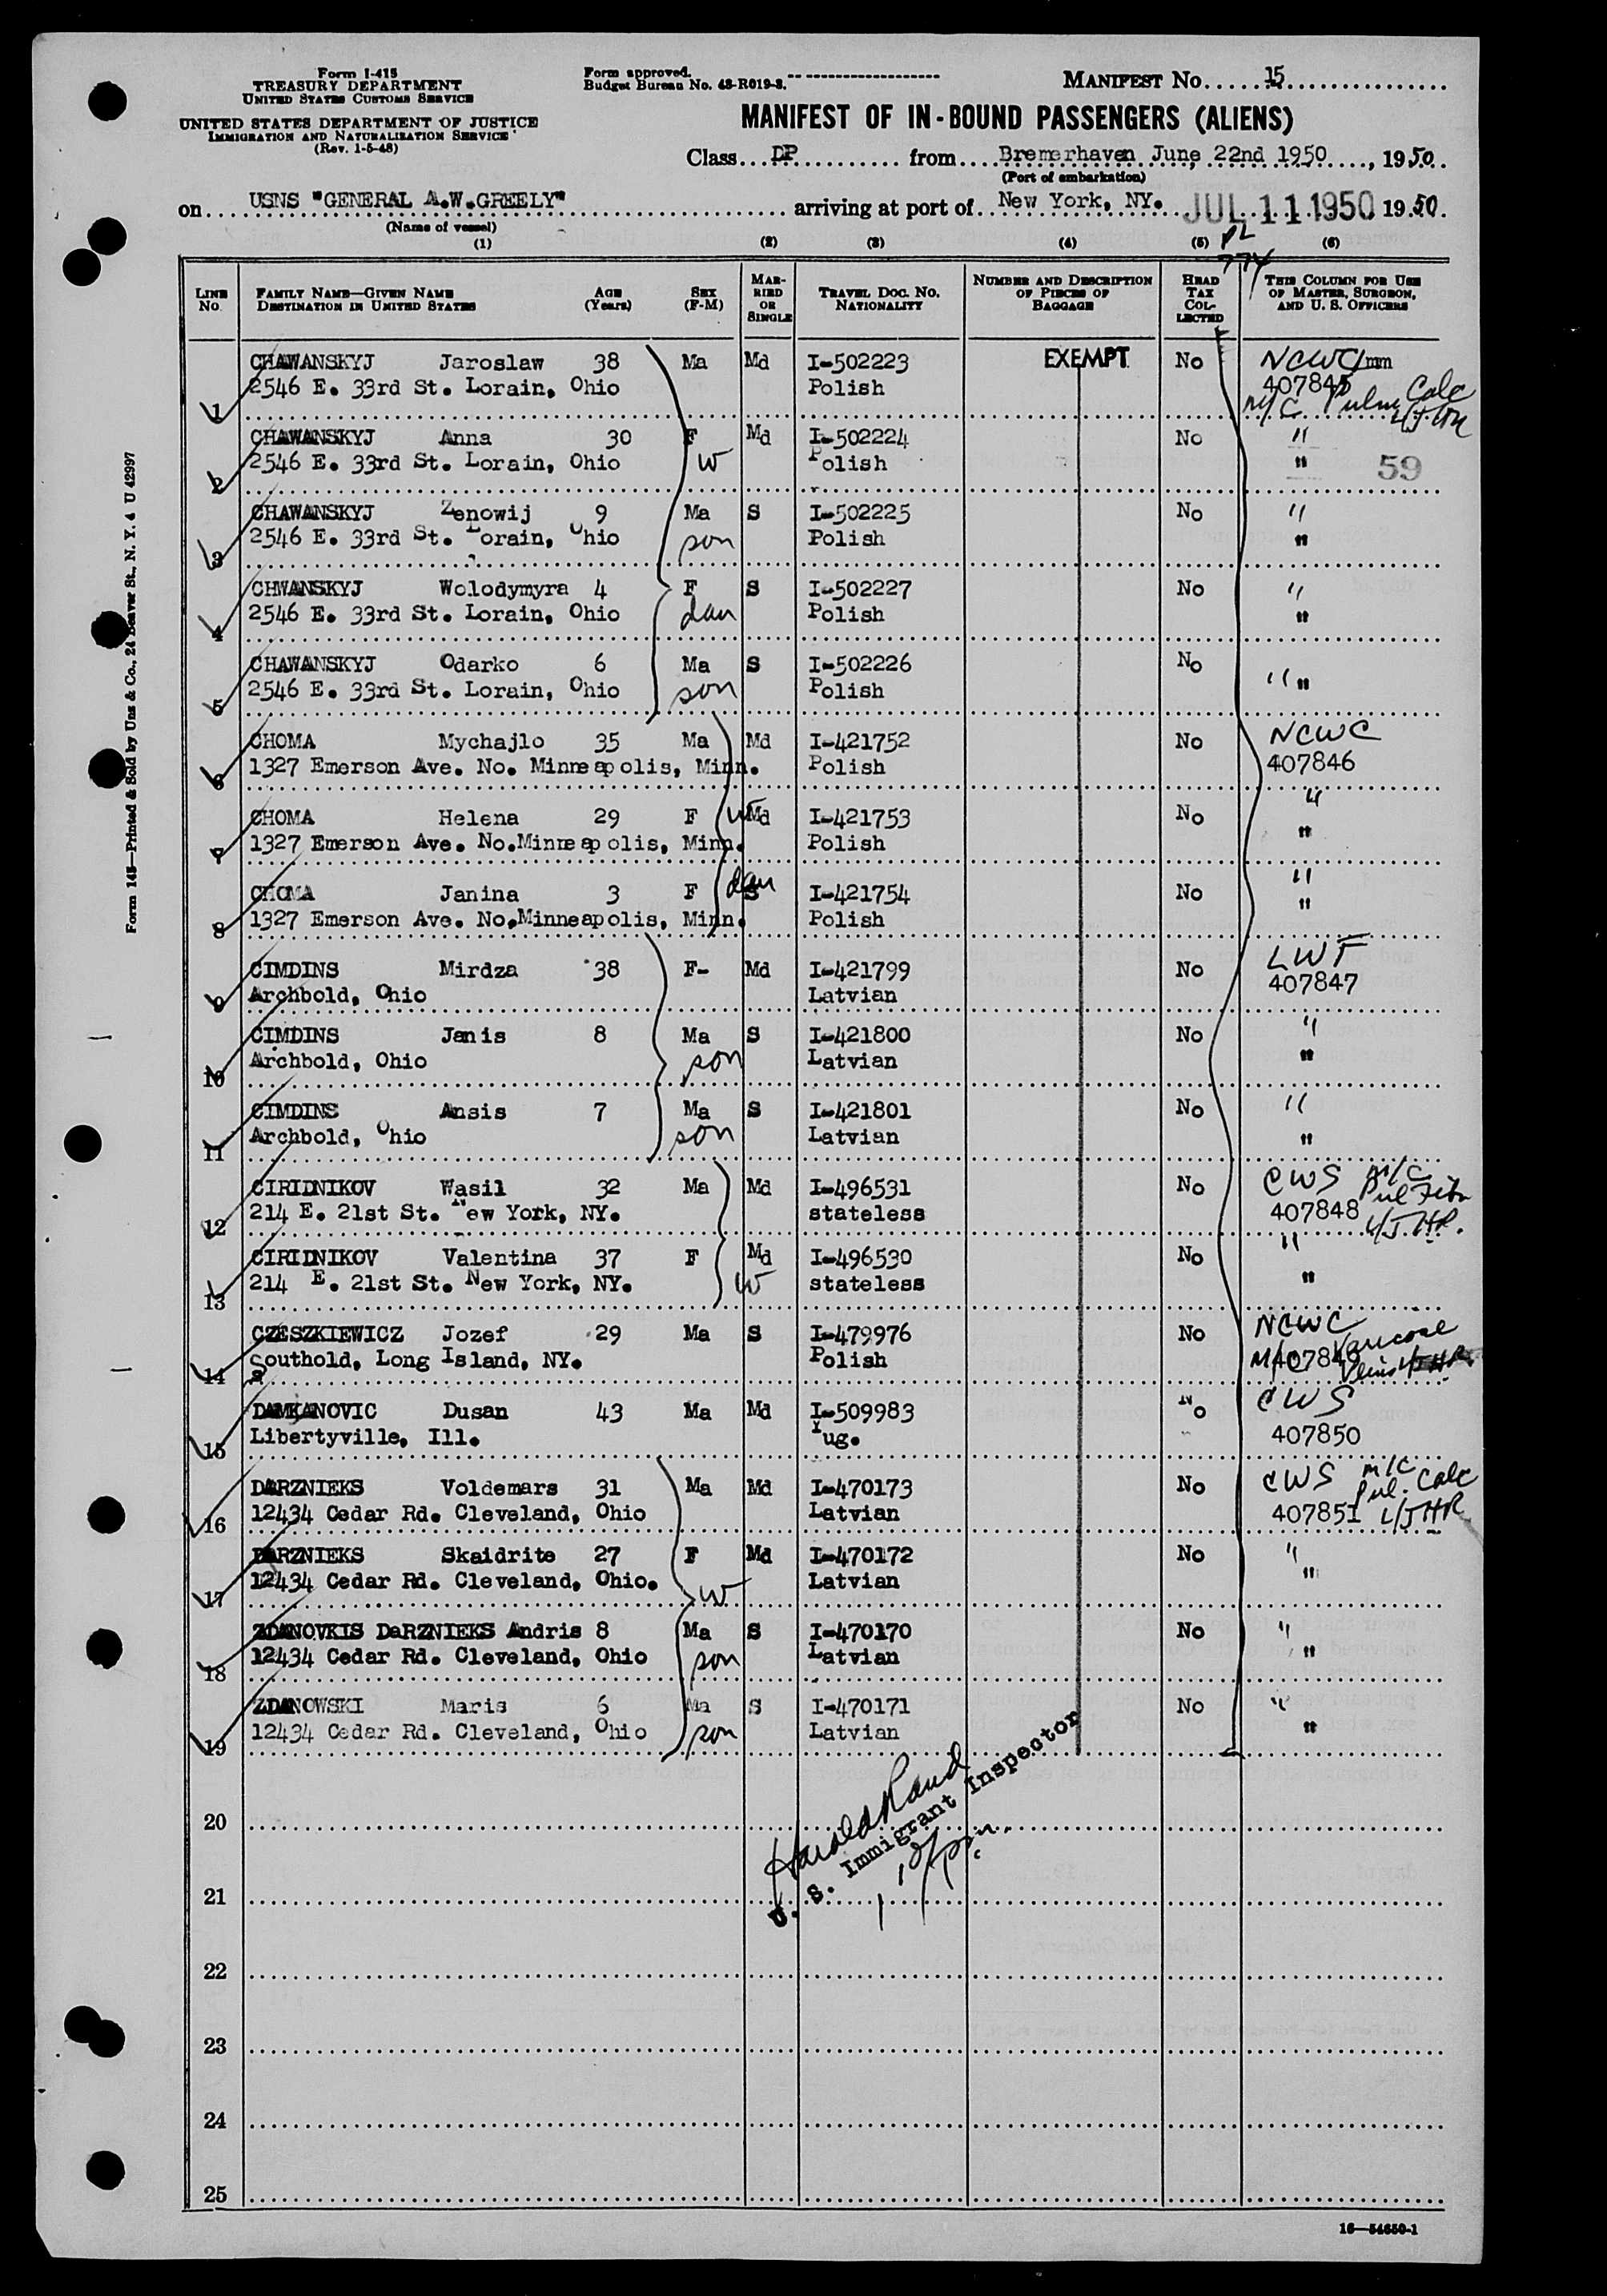 Form I-415
TREASURY DEPARTMENT
UNITED STATES CUSTOMS SERVICE
UNITED STATES DEPARTMENT OF JUSTICE
IMMIGRATION AND NATURALIZATION SERVICE
(Rev. 1-5-48)
Form approved.
Budget Bureau No. 43-R019-3.
MANIFEST No. 15
MANIFEST OF IN-BOUND PASSENGERS (ALIENS)
Class DP from Bremerhaven June, 22nd 1950, 1950
(Port of embarkation)
on USNS "GENERAL A.W.GREELY" arriving at port of New York, NY. JUL 11 1950 1950.
(Name of vessel)
(1) (2) (3) (4) (5) (6)
PL
774
LINE No. FAMILY NAME—GIVEN NAME DESTINATION IN UNITED STATES AGE (Years) SEX (F-M) MARRIED OR SINGLE TRAVEL DOC. NO. NATIONALITY NUMBER AND DESCRIPTION OF PIECES OF BAGGAGE HEAD TAX COLLECTED THIS COLUMN FOR USE OF MASTER, SURGEON, AND U. S. OFFICERS
CHAWANSKYJ Jaroslaw 38 Ma Md I-502223 EXEMPT No NCWC
1 2546 E. 33rd St. Lorain, Ohio Polish 407845
M/C Pulm Calc
CHAWANSKYJ Anna 30 F Md I-502224 No "
2 2546 E. 33rd St. Lorain, Ohio W Polish " 59
CHAWANSKYJ Zenowij 9 Ma S I-502225 No "
3 2546 E. 33rd St. Lorain, Ohio son Polish "
CHWANSKYJ Wolodymyra 4 F S I-502227 No "
4 2546 E. 33rd St. Lorain, Ohio dau Polish "
CHAWANSKYJ Odarko 6 Ma S I-502226 No
5 2546 E. 33rd St. Lorain, Ohio son Polish " "
CHOMA Mychajlo 35 Ma Md I-421752 No NCWC
6 1327 Emerson Ave. No. Minneapolis, Minn. Polish 407846
CHOMA Helena 29 F W Md I-421753 No "
7 1327 Emerson Ave. No.Minneapolis, Minn. Polish "
CHOMA Janina 3 F dau S I-421754 No "
8 1327 Emerson Ave. No.Minneapolis, Minn. Polish "
CIMDINS Mirdza 38 F- Md I-421799 No LWF
9 Archbold, Ohio Latvian 407847
CIMDINS Janis 8 Ma S I-421800 No "
10 Archbold, Ohio son Latvian "
CIMDINS Ansis 7 Ma S I-421801 No "
11 Archbold, Ohio son Latvian "
CIRIDNIKOV Wasil 32 Ma Md I-496531 No CWS M/C
12 214 E. 21st St. New York, NY. stateless 407848
CIRIDNIKOV Valentina 37 F Md I-496530 No "
13 214 E. 21st St. New York, NY. W stateless "
CZESZKIEWICZ Jozef 29 Ma S I-479976 No NCWC
14 Southold, Long Island, NY. Polish M/C Varicose Veins
DAMKANOVIC Dusan 43 Ma Md I-509983 No CWS
15 Libertyville, Ill. Yug. 407850
DARZNIEKS Voldemars 31 Ma Md I-470173 No CWS M/C Pul. Calc
16 12434 Cedar Rd. Cleveland, Ohio Latvian 407851 L/JHR
DARZNIEKS Skaidrite 27 F Md I-470172 No "
17 12434 Cedar Rd. Cleveland, Ohio. W Latvian "
ZDANOVKIS DaRZNIEKS Andris 8 Ma S I-470170 No "
18 12434 Cedar Rd. Cleveland, Ohio son Latvian "
ZDANOWSKI Maris 6 Ma S I-470171 No "
19 12434 Cedar Rd. Cleveland, Ohio son Latvian "
Harold Rand
U. S. Immigrant Inspector
20
21
22
23
24
25
16—54650-1
Form 145—Printed & Sold by Unz & Co., 24 Beaver St., N. Y. 4 U 42997